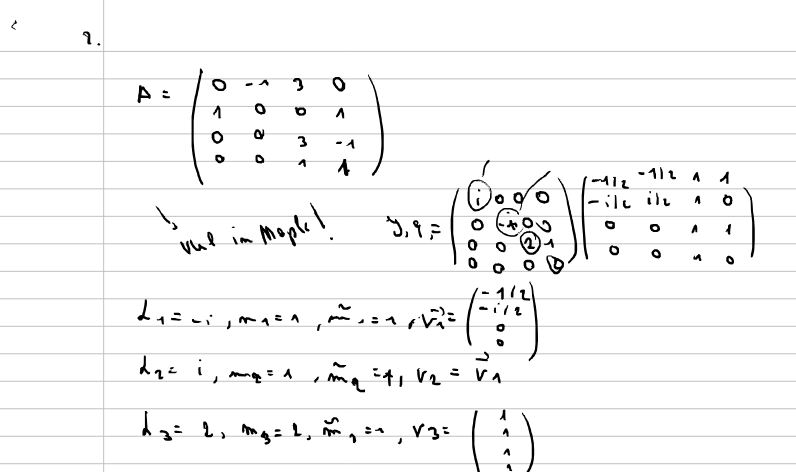 2.
A = ( 0 -1 3 0
1 0 0 1
0 0 3 -1
0 0 1 1 )
in Maple!
J, Q = ( i 0 0 0
0 -i 0 0
0 0 2 1
0 0 0 2 ) ( -1/2 -1/2 1 1
-i/2 i/2 1 0
0 0 1 1
0 0 1 0 )
λ1 = -i, m1 = 1, m̃1 = 1, v⃗1 = ( -1/2
-i/2
0
0 )
λ2 = i, m2 = 1, m̃2 = 1, v2 = v⃗1
λ3 = 2, m3 = 2, m̃3 = 1, v3 = ( 1
1
1
1 )